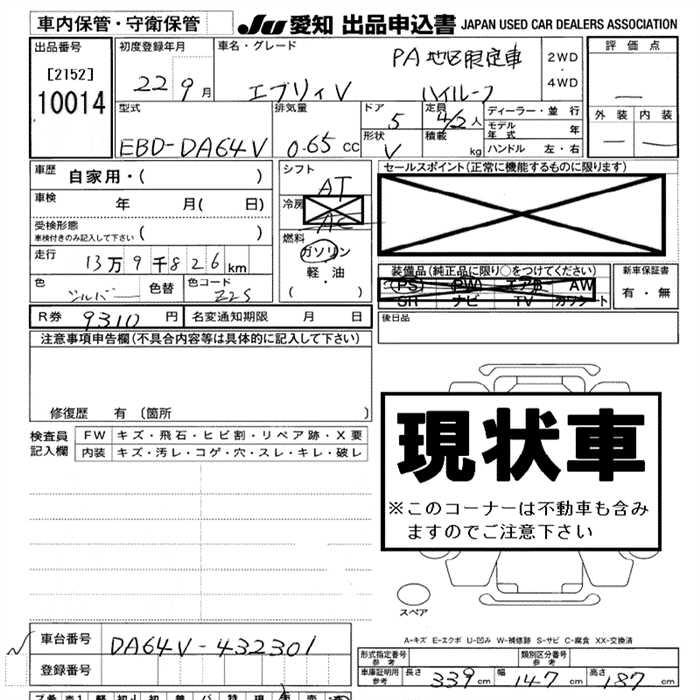 車内保管・守衛保管 JU 愛知 出品申込書 JAPAN USED CAR DEALERS ASSOCIATION
出品番号
[2152]
10014
初度登録年月
22 9月
車名・グレード
エブリィV
PA 地区限定車
ハイルーフ
2WD
・
4WD
評価点
—
外装 内装
— —
型式
EBD-DA64V
排気量
0.65 cc
ドア
5
定員
4/2人
形状
V
積載
kg
ディーラー・並行
モデル年式 年
ハンドル 左・右
車歴 自家用・( )
車検 年 月( 日)
受検形態
車検付きのみ記入して下さい ( )
走行 13万9千826km
色 シルバー 色替 色コード Z2S
シフト
AT
冷房
AC
燃料
ガソリン
軽・油
( ・ )
セールスポイント(正常に機能するものに限ります)
装備品(純正品に限り○をつけてください)
(PS) (PW) エアB AW
SR ナビ TV カワシート
新車保証書
有・無
R券 9310円 名変通知期限 月 日
後日品
注意事項申告欄(不具合内容等は具体的に記入して下さい)
修復歴 有(箇所 )
検査員記入欄
FW キズ・飛石・ヒビ割・リペア跡・X要
内装 キズ・汚レ・コゲ・穴・スレ・キレ・破レ
現状車
※このコーナーは不動車も含み
ますのでご注意下さい
スペア
A-キズ E-エクボ U-凹み W-補修跡 S-サビ C-腐食 XX-交換済
車台番号 DA64V-432301
登録番号
形式指定番号 参考
類別区分番号 参考
車庫証明用 参考
長さ 339cm 幅 147cm 高さ 187cm